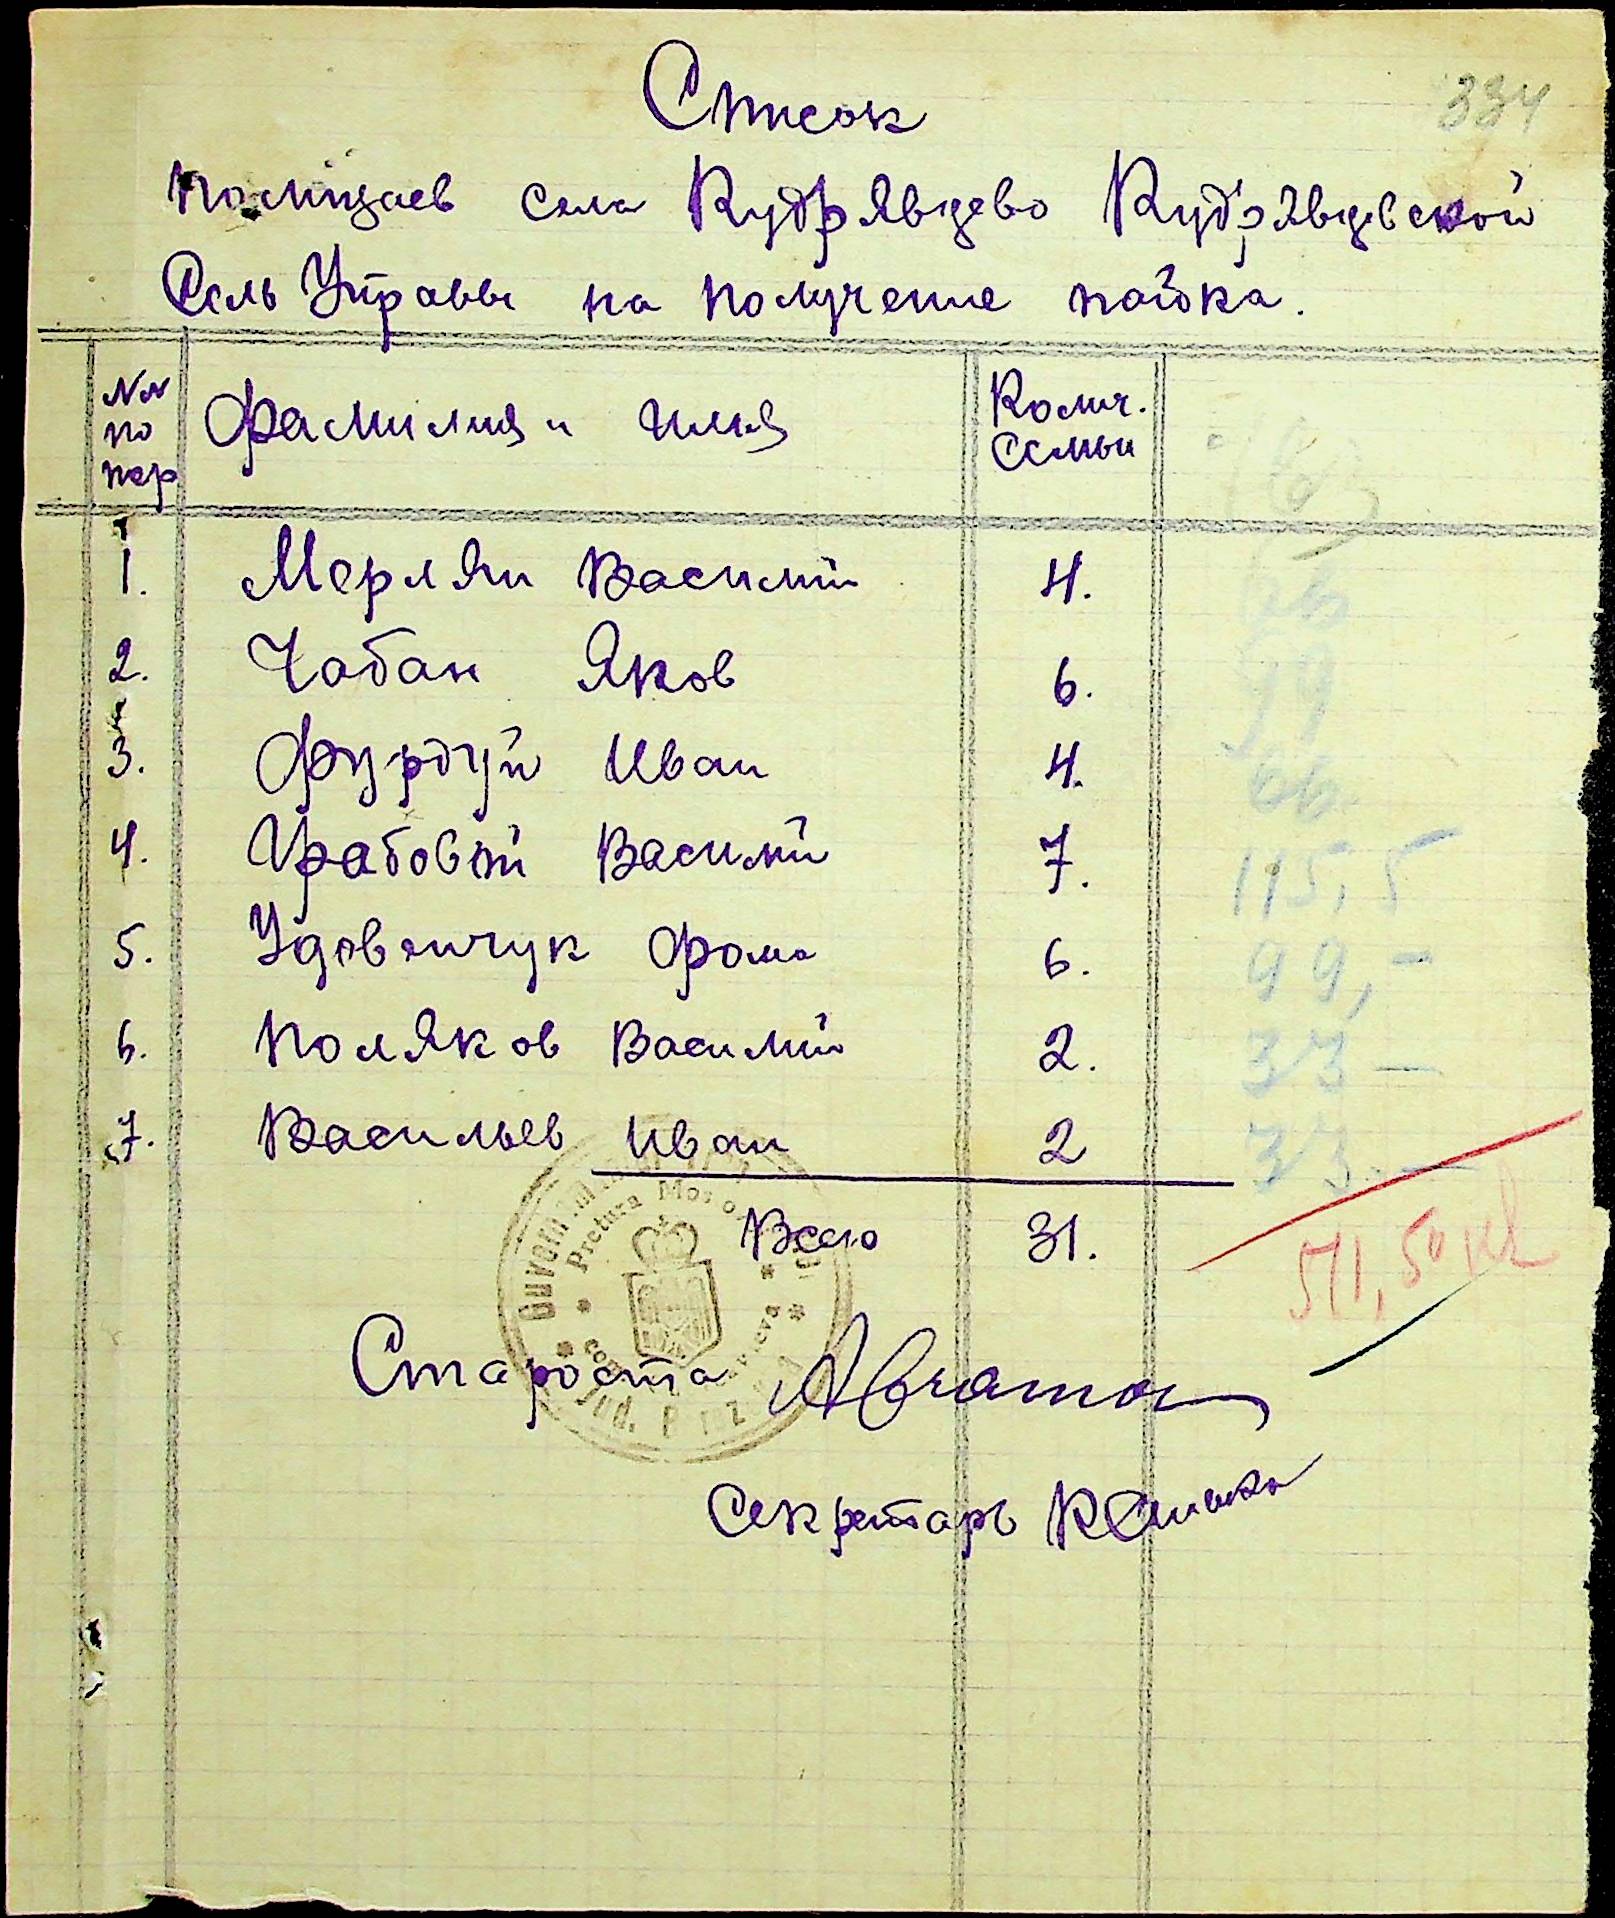 334
Список
полицаев села Кудрявцево Кудрявцевской
Сель Управы на получение пайка.
№№ по пор
Фамилия и имя
Колич. семьи
1. Мерлян Василий 4. 66
2. Чабан Яков 6. 99
3. Фурдуй Иван 4. 66.
4. Грабовой Василий 7. 115,5
5. Удовенчук Фома 6. 99,-
6. Поляков Василий 2. 33 —
7. Васильев Иван 2 33. —
Всего 31. 511,50 кг
Guvernământul
Pretura
Jud.
Староста
Секретарь